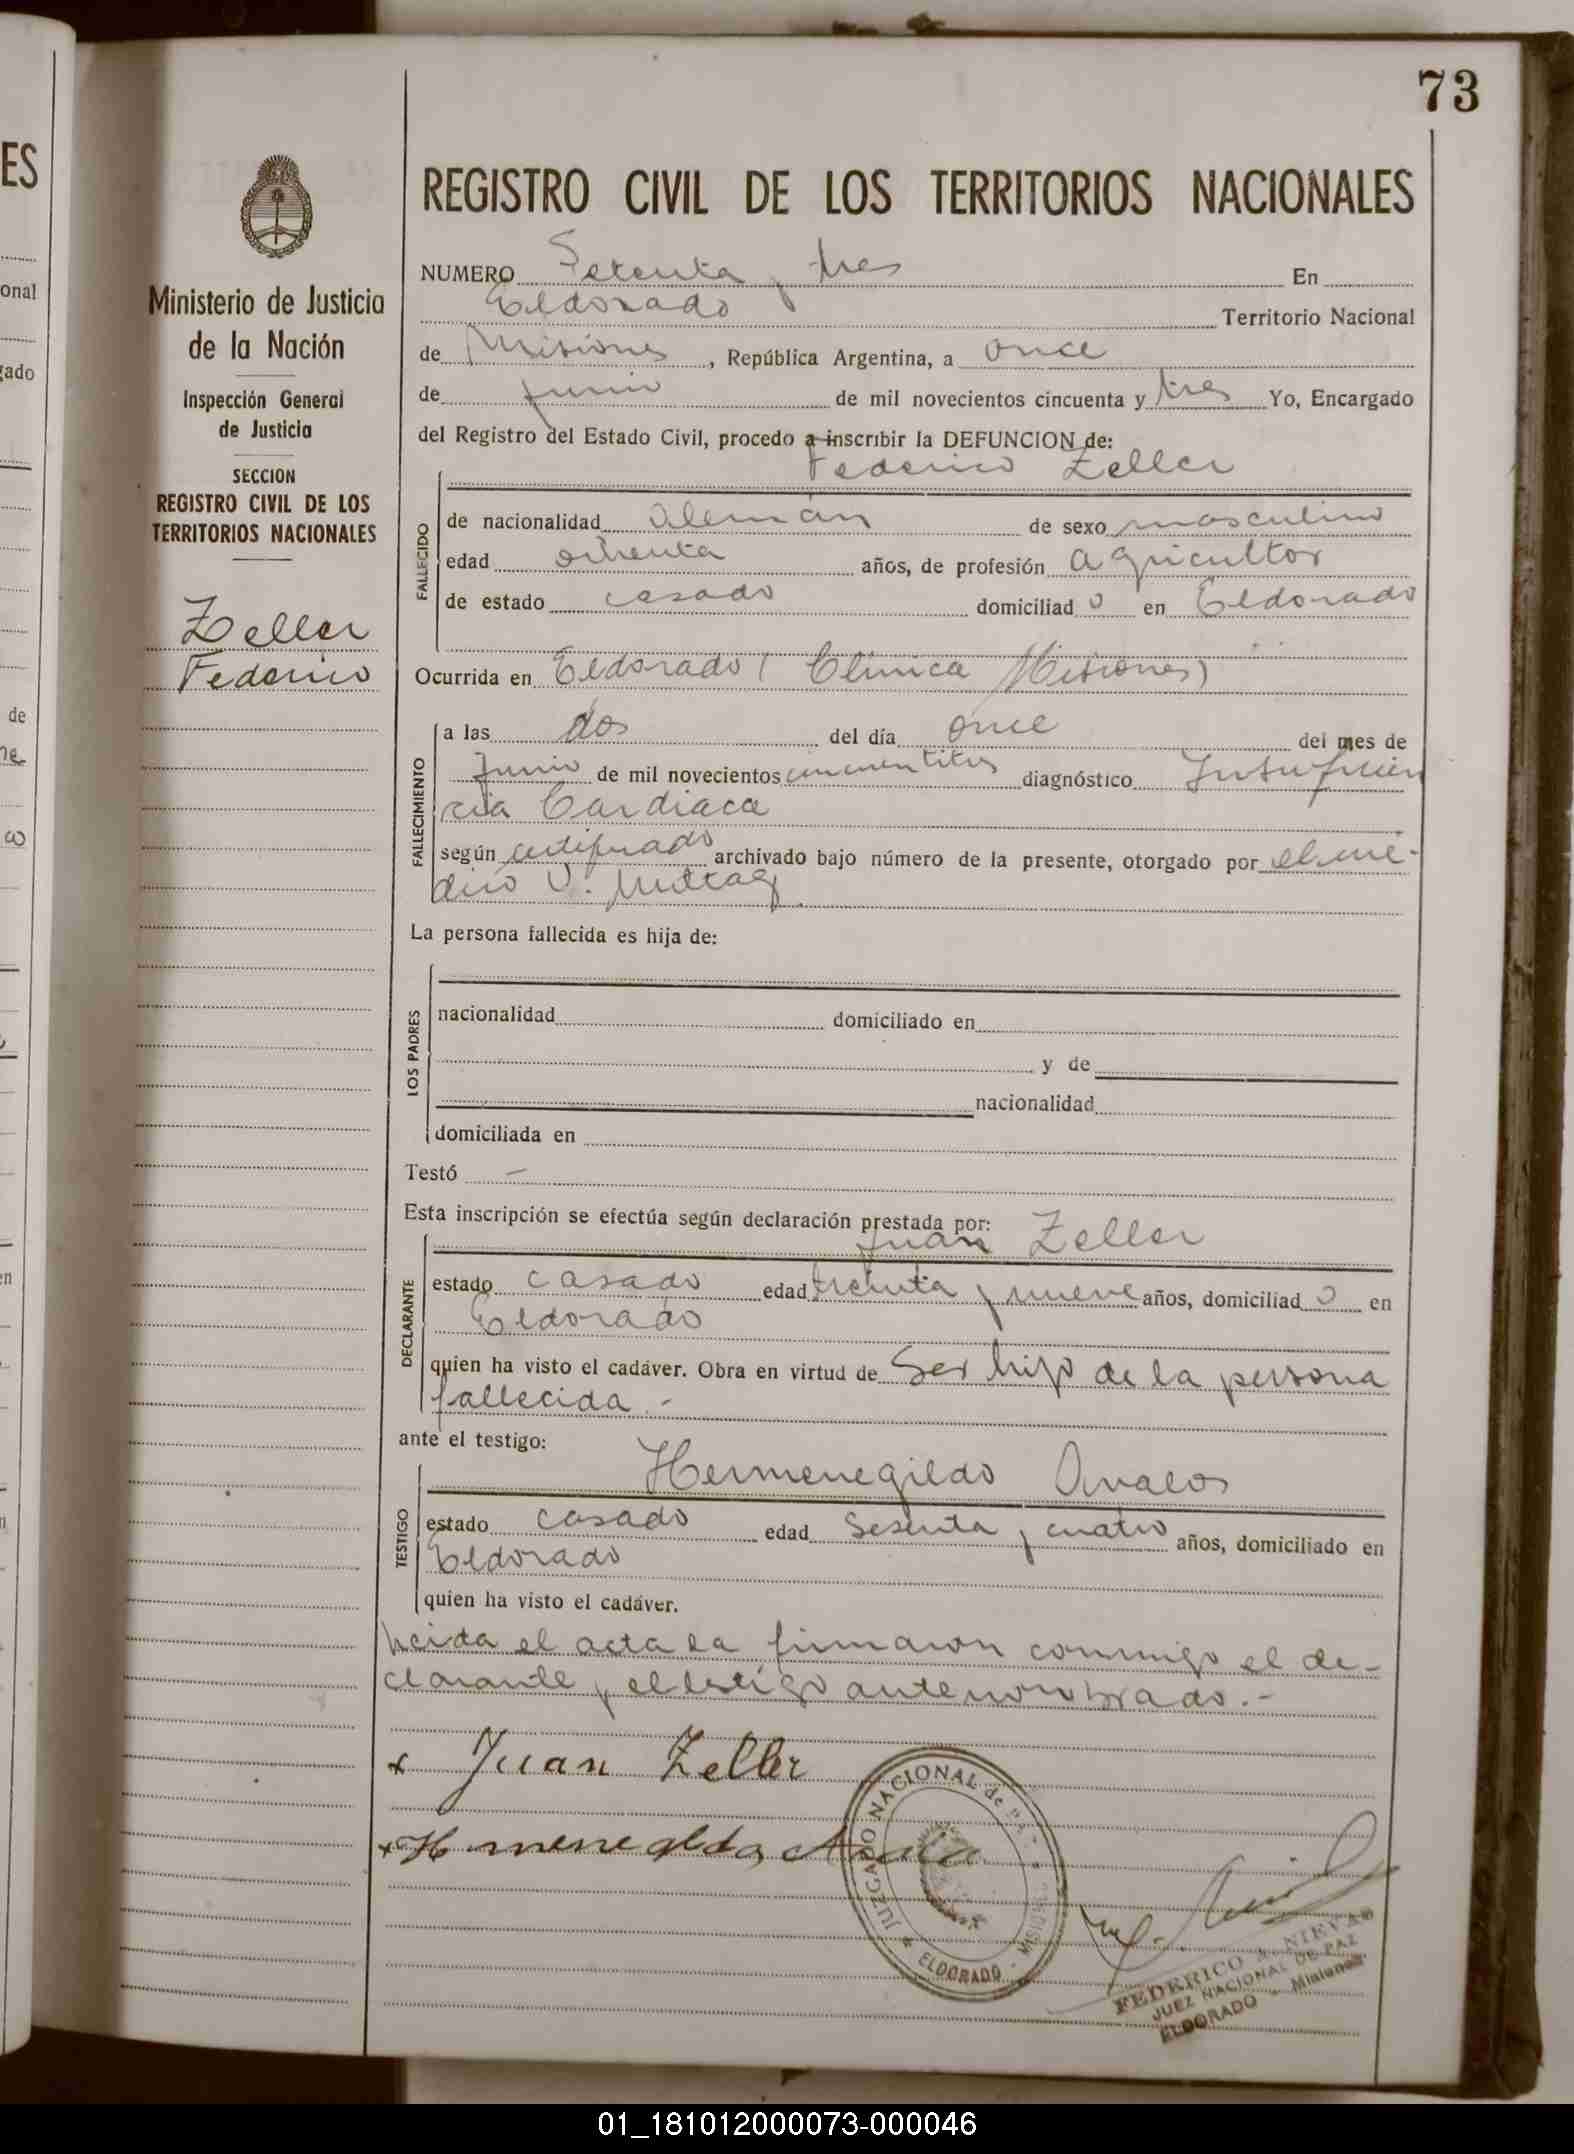 73
REGISTRO CIVIL DE LOS TERRITORIOS NACIONALES
Ministerio de Justicia
de la Nación
Inspección General
de Justicia
SECCION
REGISTRO CIVIL DE LOS
TERRITORIOS NACIONALES
Zeller
Federico
NUMERO Setenta y tres En
Eldorado Territorio Nacional
de Misiones, República Argentina, a once
de junio de mil novecientos cincuenta y tres Yo, Encargado
del Registro del Estado Civil, procedo a inscribir la DEFUNCION de:
Federico Zeller
FALLECIDO
de nacionalidad alemán de sexo masculino
edad ochenta años, de profesión agricultor
de estado casado domiciliad o en Eldorado
Ocurrida en Eldorado (Clínica Misiones)
FALLECIMIENTO
a las dos del día once del mes de
Junio de mil novecientos cincuentitres diagnóstico Insuficien
cia Cardiaca
según certificado archivado bajo número de la presente, otorgado por el mé-
dico
La persona fallecida es hija de:
LOS PADRES
nacionalidad domiciliado en
y de
nacionalidad
domiciliada en
Testó -
Esta inscripción se efectúa según declaración prestada por:
Juan Zeller
DECLARANTE
estado casado edad treinta y nueve años, domiciliad o en
Eldorado
quien ha visto el cadáver. Obra en virtud de ser hijo de la persona
fallecida.-
ante el testigo:
Hermenegildo Avalos
TESTIGO
estado casado edad sesenta y cuatro años, domiciliado en
Eldorado
quien ha visto el cadáver.
Leida el acta la firmaron conmigo el de-
clarante y el testigo antenombrado.-
x Juan Zeller
x Hermenegildo Avalos
JUZGADO NACIONAL de PAZ
ELDORADO - MISIONES
FEDERICO A. NIEVAS
JUEZ NACIONAL DE PAZ
ELDORADO - Misiones
ES
onal
gado
de
01_181012000073-000046